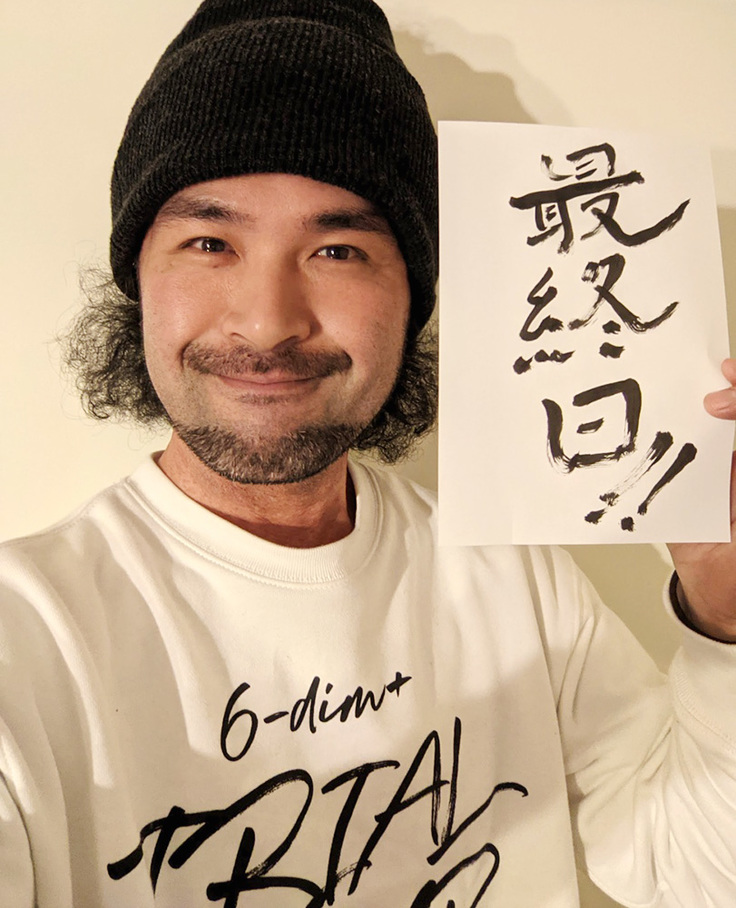 最終日!!
6-dim+
TRIAL